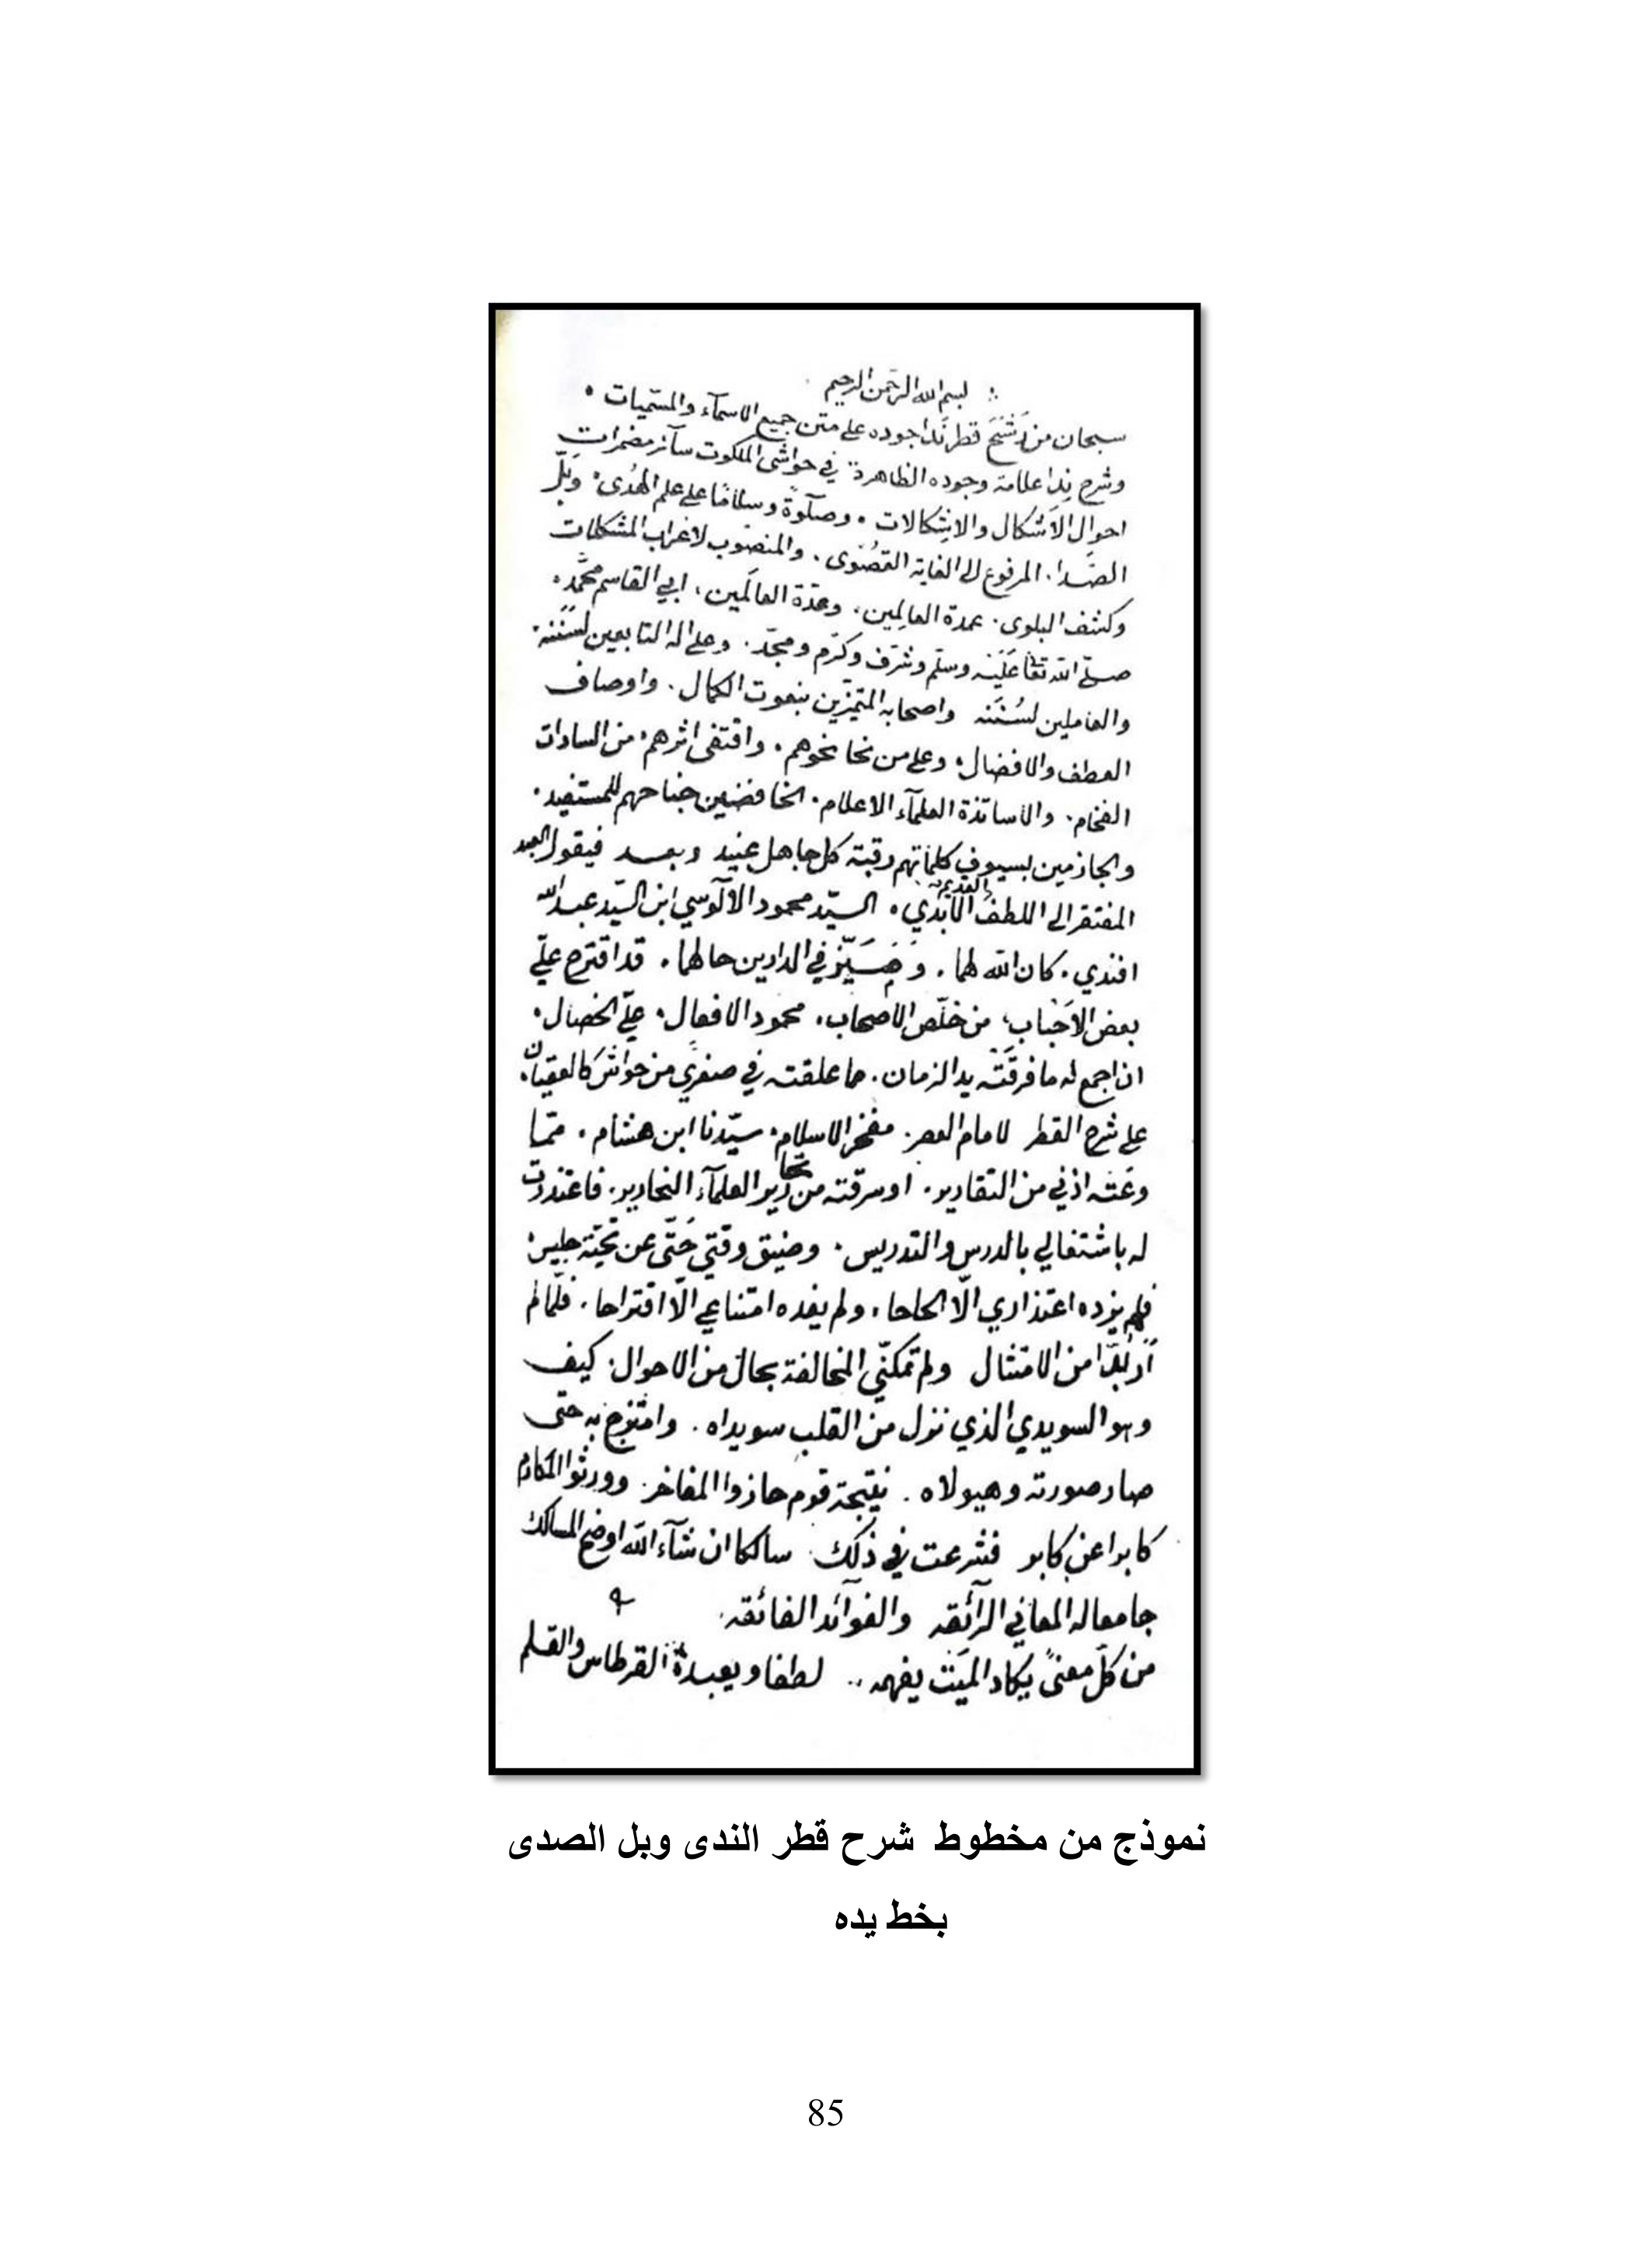 بسم الله الرحمن الرحيم
سبحان من رَشَّحَ قطر نَدا جوده على متن جميع الاسمآء والمسمّيات
وشرح نِدا علامة وجوده الظاهرة في حواشي الملكوت سآئر مضمرات
احوال الأشكال والاِشكالات وصلٰوةً وسلامًا على علم الهُدى وبَلِّ
الصَّدا المرفوع الى الغاية القصْوى والمنصوب لاعراب المشكلات
وكشف البلوى عمدة العالِمين، وعدّة العالَمين، ابي القاسم محمَّد
صلى الله تعا عَلَيْه وسلّم وشرّف وكرّم ومجّد وعلى اله التابعين لسَنَنه
والعاملين لسُنَنه واصحابه المتميّزين بنعوت الكمال واوصاف
العطف والافضال وعلى من نحا نحوهم واقتفى اثرهم من السادات
الفخام والاساتذة العلمآء الاعلام الخافضين جناحهم للمستفيد
والجازمين بسيوف كلماتهم رقبة كل جاهل عنيد وبعد فيقول العبد
المفتقر الى اللطف القديم الأبدي السيّد محمود الآلوسي ابن السيّد عبد الله
افندي كان الله لهما وَصَيَّر في الدارين حالهما قد اقترح عليّ
بعض الاَحْباب، من خلّص الاصحاب، محمود الافعال عليّ الخصال
ان اجمع له ما فرقَتْه يد الزمان ما علقته في صغري من حواش كالعقيان
على شرح القطر لامام العصر مفخر الاسلام سيّدنا ابن هشام ممّا
وعَته اذني من التقارير او سرقته من تحارير العلمآء النحارير فاعتذرت
له باشتغالي بالدرس والتدريس وضيق وقتي حَتّى عن تحيّة جليس
فلم يزده اعتذاري الّا الحاحا، ولم يفده امتناعي الّا اقتراحا فلمّا لم
أر بُدًّا من الامتثال ولم تمكنّي المخالفة بحال من الاحوال كيف
وهو السويدي الذي نزل من القلب سويداه وامتزج به حتى
صار صورته وهيولاه نتيجة قوم حازوا المفاخر وورثوا المكارم
كابرا عن كابر فشرعت في ذلك سالكا ان شآء الله اوضح المسالك
جامعا له المعاني الرآئقه والفوآئد الفائقه
من كلّ معنىً يكاد الميَت يفهمه لطفا ويعبدهُ القرطاس والقلم
نموذج من مخطوط شرح قطر الندى وبل الصدى
بخط يده
85